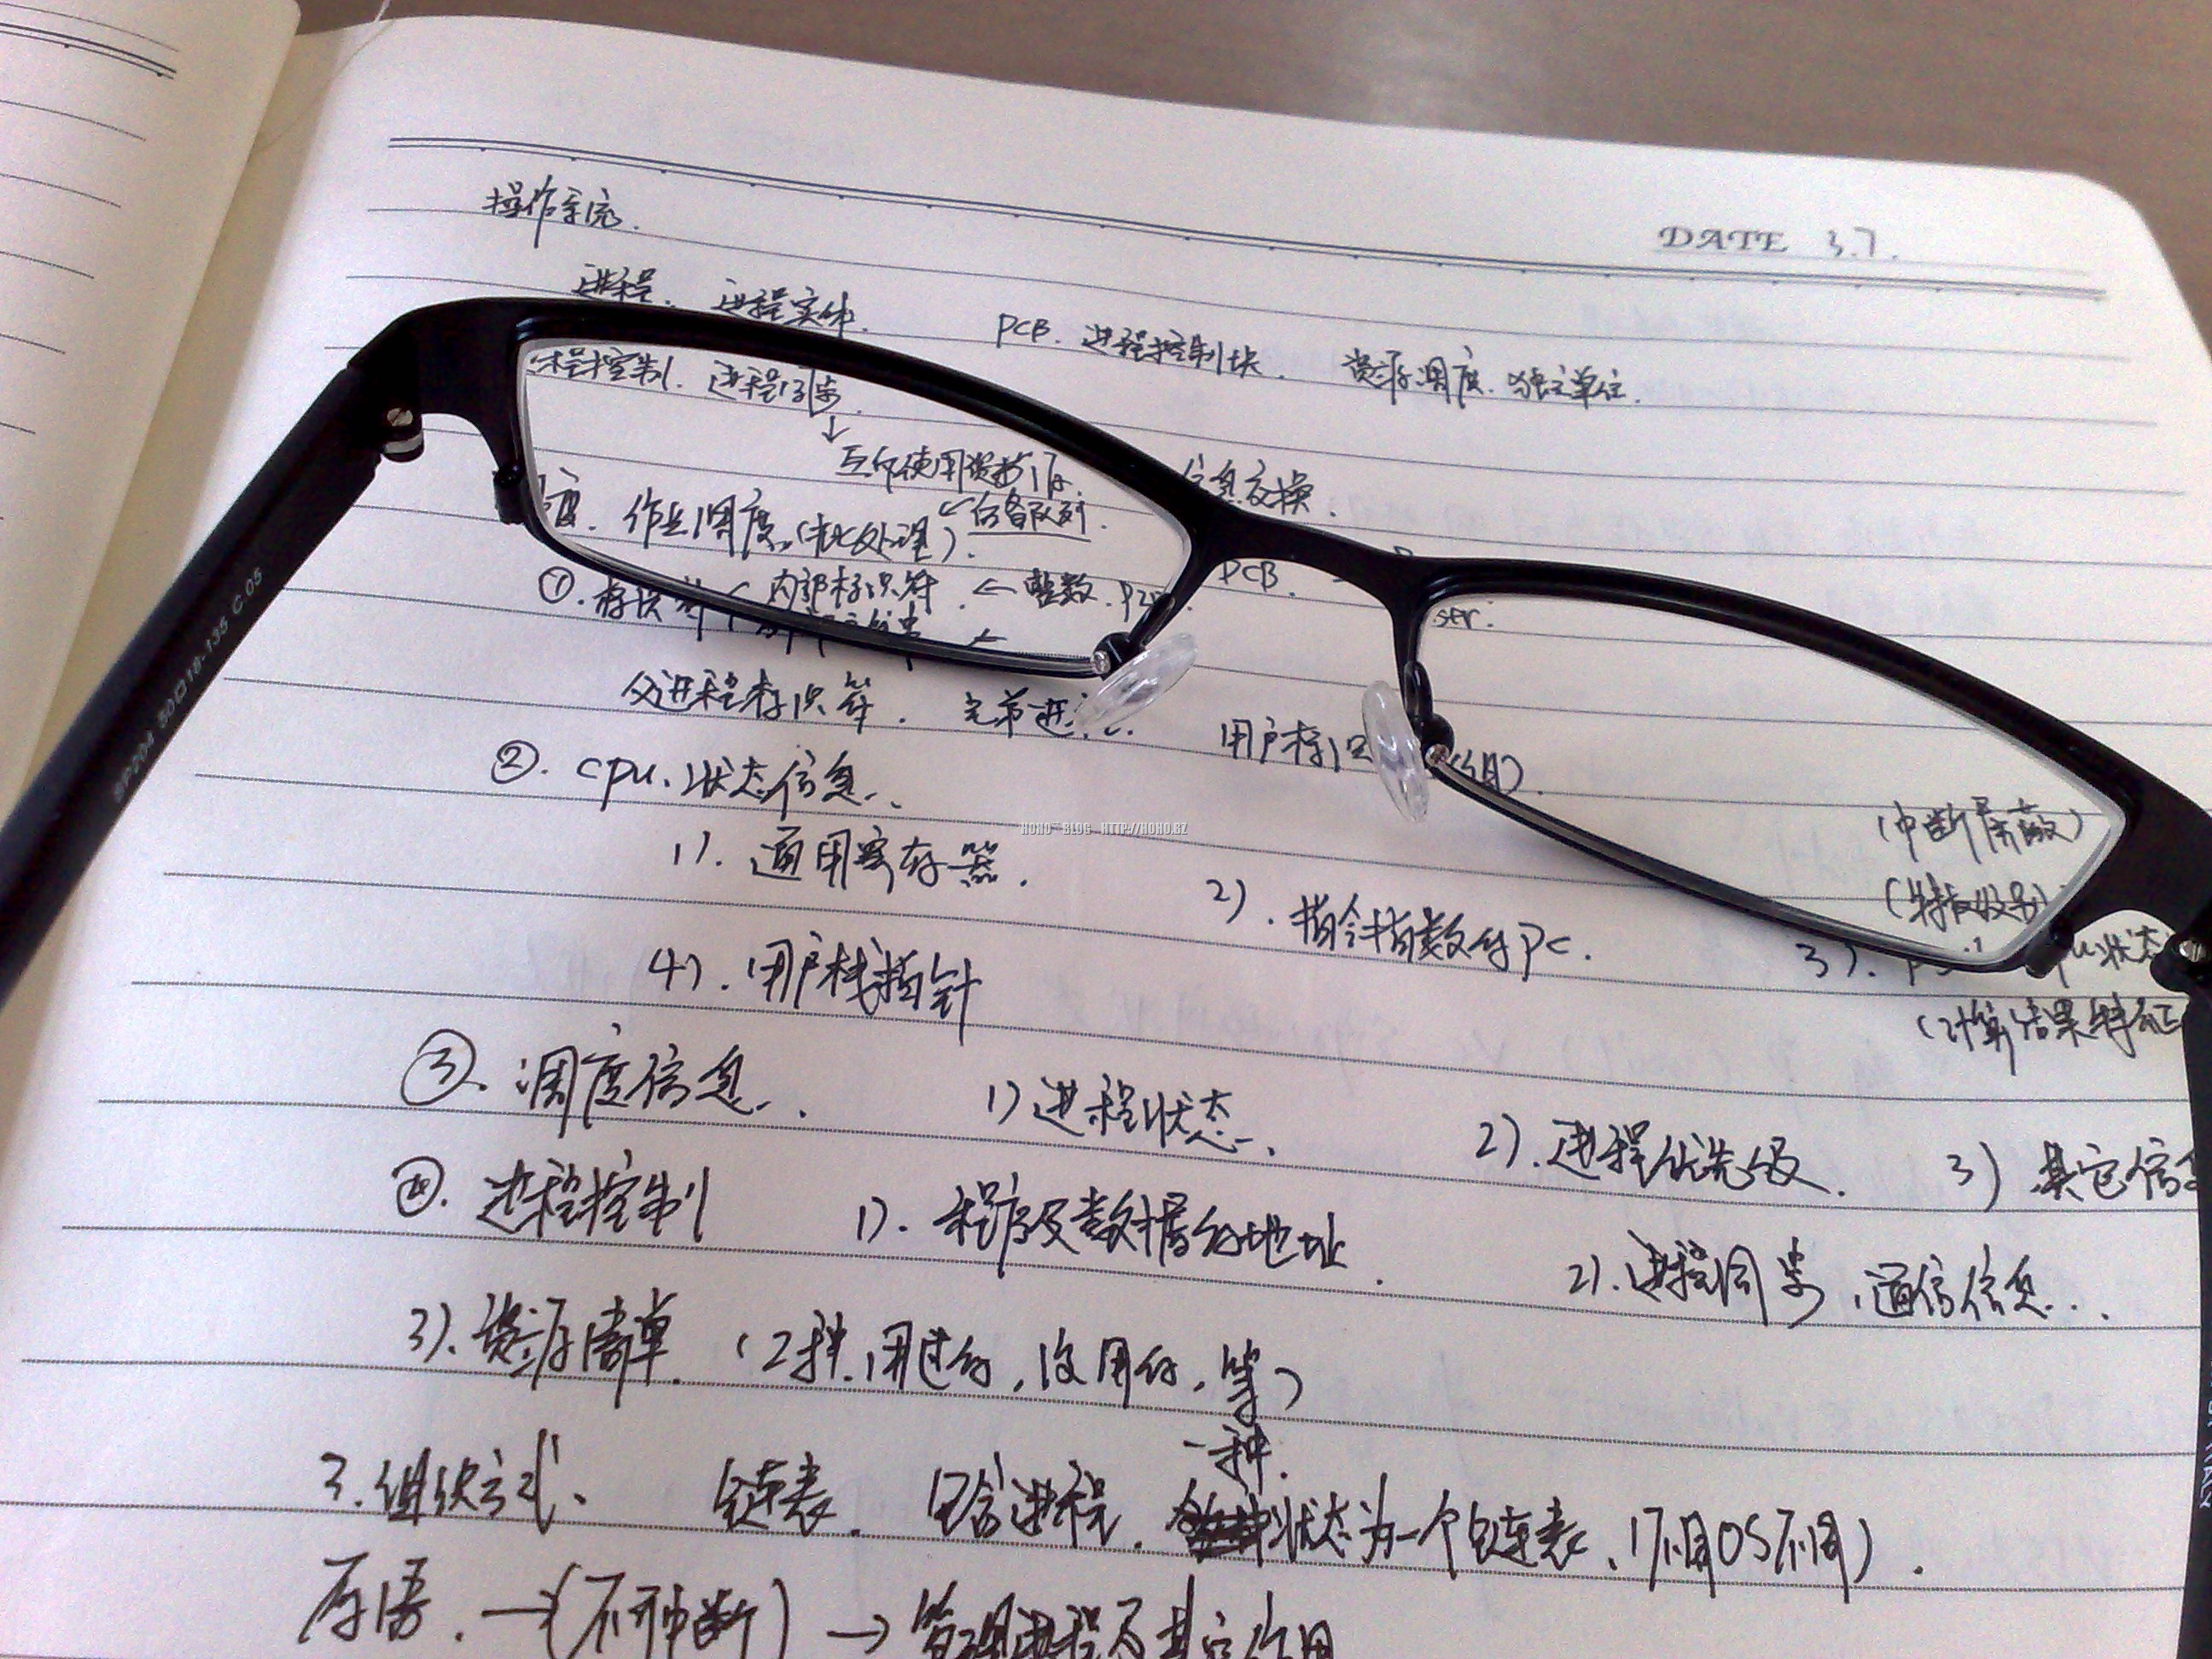 操作系统.
DATE 3.7.
进程. 进程实体. PCB. 进程控制块. 资源调度. 独立单位.
程控制. 进程同步.
↓
信息交换.
度. 作业调度.(批处理). ← 后备队列.
①. 标识符 内部标识符. ← 整数. PCB.
ser.
父进程标识符. 兄弟进 用户标识 (组).
②. CPU. 状态信息..
(中断屏蔽)
1). 通用寄存器. 2). 指令指数的PC. (特权级别)
4). 用户栈指针 3). 状态
(计算结果特征
③. 调度信息.. 1) 进程状态. 2). 进程优先级. 3) 其它信
④. 进程控制 1). 程序及数据的地址. 2). 进程同步, 通信信息...
3). 资源清单. (2种. 用过的, 没用的, 等)
一种.
3. 组织方式. 链表. 包含进程. 状态为一个链表. (不同OS不同).
原语. →(不可中断) → 管理进程及其它作用
SP204 50□18-135 C.05
HOHO BLOG HTTP://HOHO.BZ